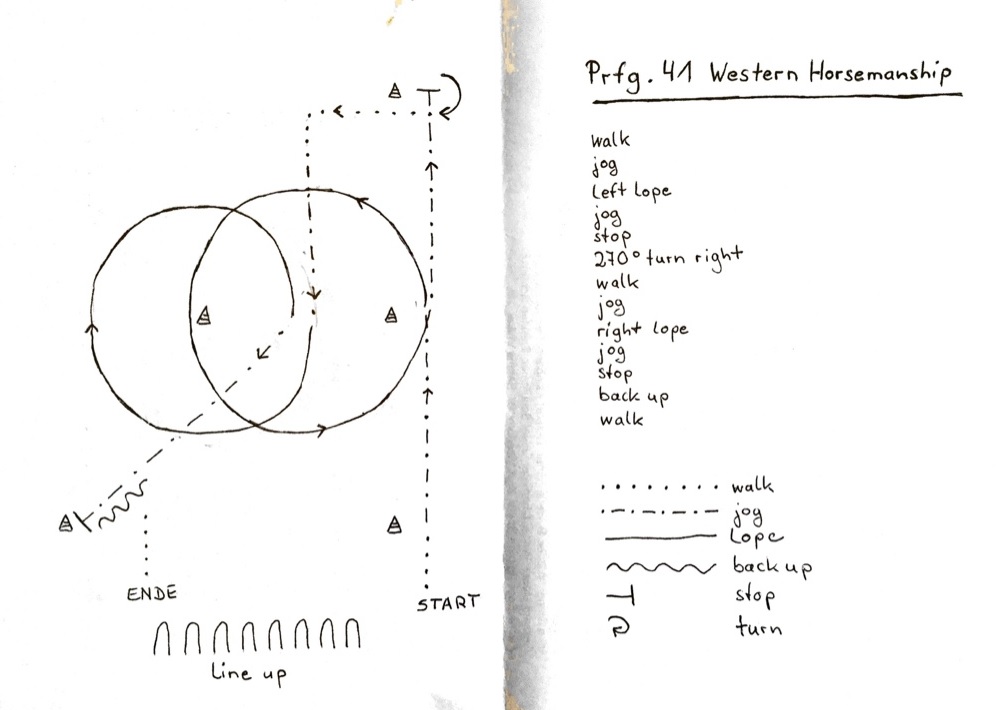 Prfg. 41 Western Horsemanship
walk
jog
Left Lope
jog
stop
270° turn right
walk
jog
right lope
jog
stop
back up
walk
walk
jog
Lope
back up
stop
turn
ENDE
START
Line up